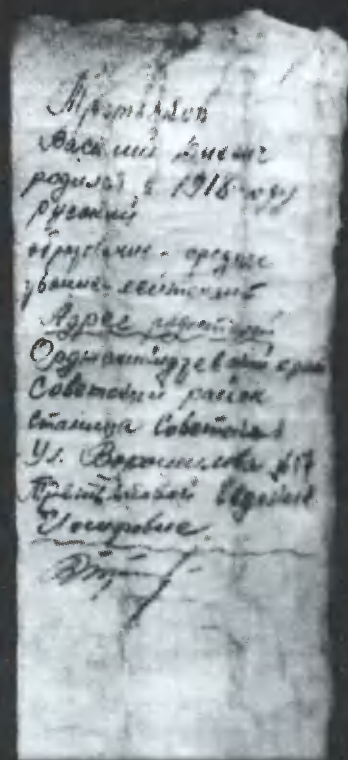 Василий
родился в 1918 году
Русский
образование - среднее
звание - лейтенант
Адрес родителей
Орджоникидзевский край
Советский район
станица Советская
Ул. Ворошилова №17
Евдокие